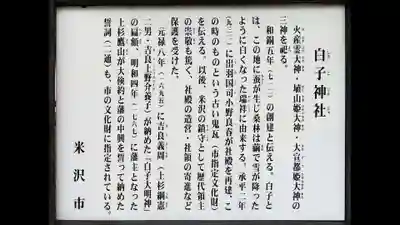 白子神社
火産霊大神・埴山姫大神・大宜都姫大神の
三神を祀る。
和銅五年（七一二）の創建と伝える。白子と
は、この地に蚕が生じ桑林は繭で雪が降った
ように白くなった瑞祥に由来する。承平二年
（九三二）に出羽国司小野良春が社殿を再建、こ
の時のものという古い鬼瓦（市指定文化財）
を伝える。以後、米沢の鎮守として歴代領主
の崇敬も篤く、社殿の造営・社領の寄進など
保護を受けた。
元禄八年（一六九五）に吉良義周（上杉綱憲
二男・吉良上野介養子）が納めた「白子大明神」
の扁額、明和四年（一七六七）に藩主となった
上杉鷹山が大倹約と藩の中興を誓って納めた
誓詞（二通）も、市の文化財に指定されている。
米沢市